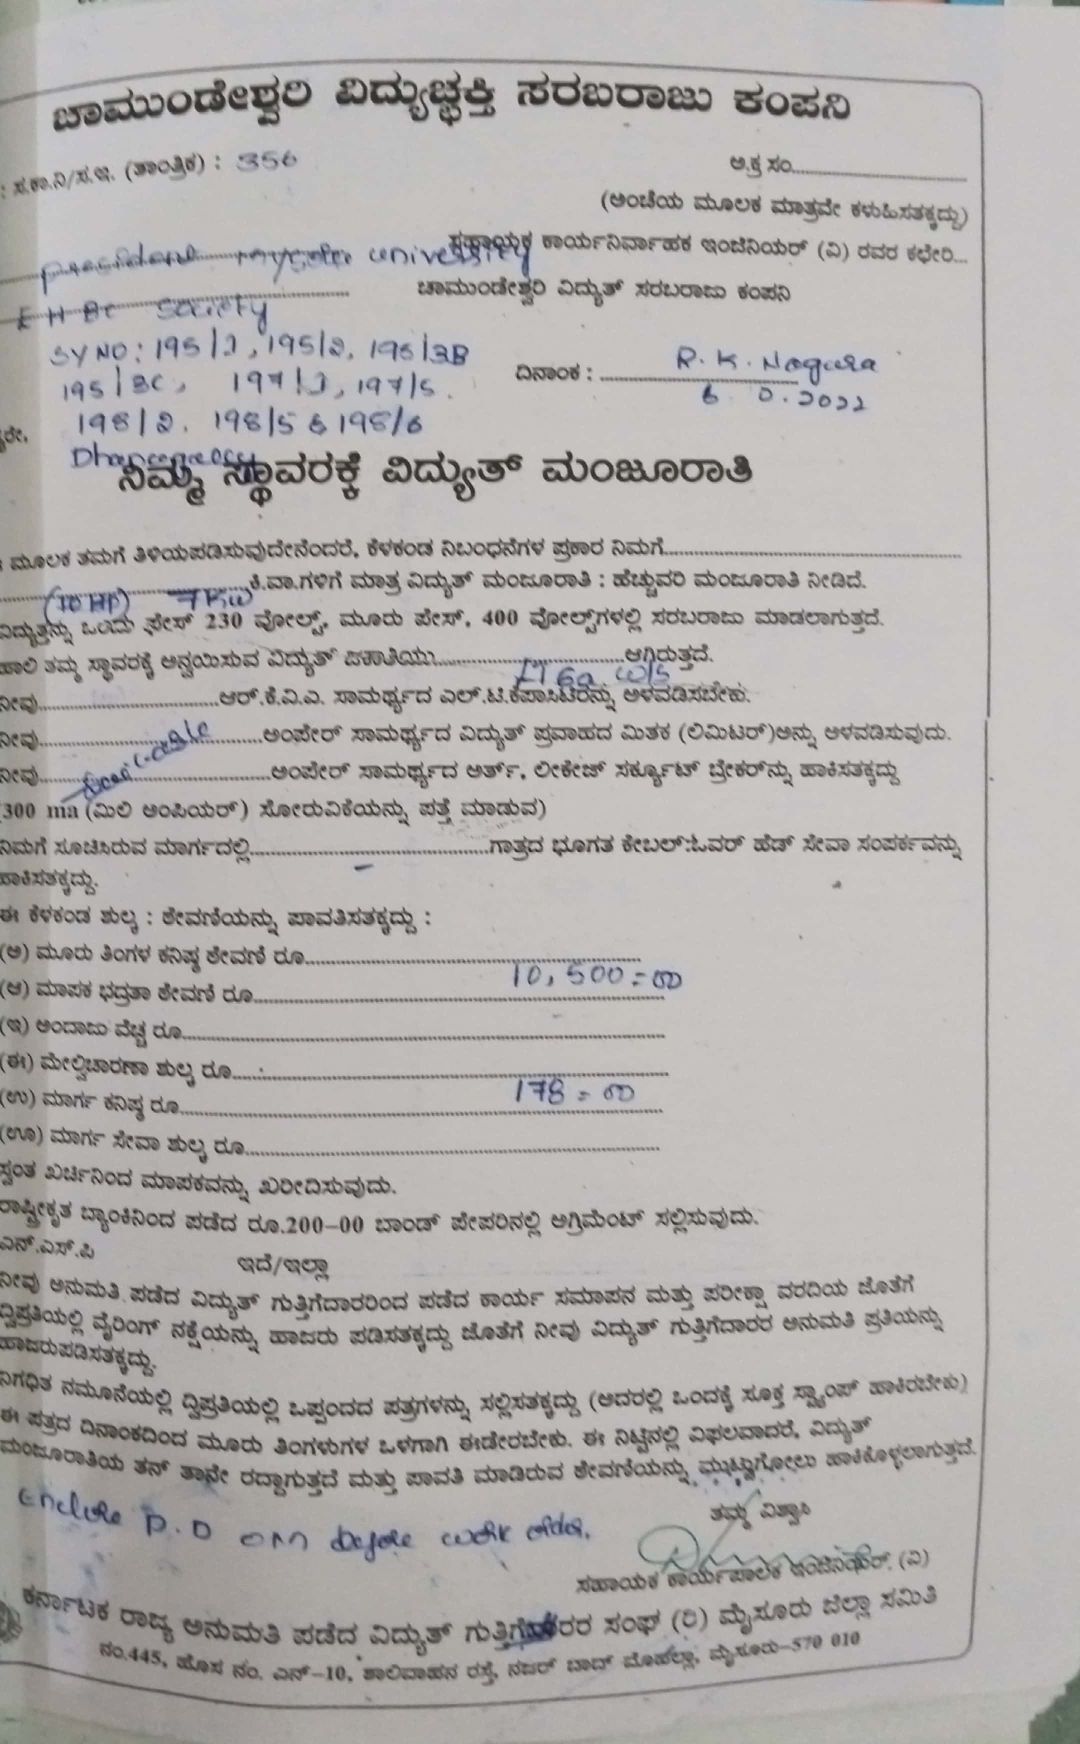 ಚಾಮುಂಡೇಶ್ವರಿ ವಿದ್ಯುಚ್ಛಕ್ತಿ ಸರಬರಾಜು ಕಂಪನಿ
: ಸ.ಕಾ.ನಿ/ಸ.ಇ. (ತಾಂತ್ರಿಕ) : 356
ಅ.ಕ್ರ ಸಂ.
(ಅಂಚೆಯ ಮೂಲಕ ಮಾತ್ರವೇ ಕಳುಹಿಸತಕ್ಕದ್ದು)
ಸಹಾಯಕ ಕಾರ್ಯನಿರ್ವಾಹಕ ಇಂಜಿನಿಯರ್ (ವಿ) ರವರ ಕಛೇರಿ...
university
ಚಾಮುಂಡೇಶ್ವರಿ ವಿದ್ಯುತ್ ಸರಬರಾಜು ಕಂಪನಿ
Society
SY NO: 195/1, 195/2, 195/3B
195/3C, 197/1, 197/5.
ದಿನಾಂಕ : R. K. Nagura
198/2. 198/5 & 198/6
ನಿಮ್ಮ ಸ್ಥಾವರಕ್ಕೆ ವಿದ್ಯುತ್ ಮಂಜೂರಾತಿ
ಮೂಲಕ ತಮಗೆ ತಿಳಿಯಪಡಿಸುವುದೇನೆಂದರೆ, ಕೆಳಕಂಡ ನಿಬಂಧನೆಗಳ ಪ್ರಕಾರ ನಿಮಗೆ
(10 HP) 7 KW ಕಿ.ವಾ.ಗಳಿಗೆ ಮಾತ್ರ ವಿದ್ಯುತ್ ಮಂಜೂರಾತಿ : ಹೆಚ್ಚುವರಿ ಮಂಜೂರಾತಿ ನೀಡಿದೆ.
ವಿದ್ಯುತ್ತನ್ನು ಒಂದು ಫೇಸ್ 230 ವೋಲ್ಟ್, ಮೂರು ಪೇಸ್, 400 ವೋಲ್ಟ್‌ಗಳಲ್ಲಿ ಸರಬರಾಜು ಮಾಡಲಾಗುತ್ತದೆ.
ಹಾಲಿ ತಮ್ಮ ಸ್ಥಾವರಕ್ಕೆ ಅನ್ವಯಿಸುವ ವಿದ್ಯುತ್ ಜಕಾತಿಯು LT 6a W/S ಆಗಿರುತ್ತದೆ.
ನೀವು ಆರ್.ಕೆ.ವಿ.ಎ. ಸಾಮರ್ಥ್ಯದ ಎಲ್.ಟಿ.ಕೆಪಾಸಿಟರನ್ನು ಅಳವಡಿಸಬೇಕು.
ನೀವು ಅಂಪೇರ್ ಸಾಮರ್ಥ್ಯದ ವಿದ್ಯುತ್ ಪ್ರವಾಹದ ಮಿತಕ (ಲಿಮಿಟರ್)ಅನ್ನು ಅಳವಡಿಸುವುದು.
ನೀವು ಅಂಪೇರ್ ಸಾಮರ್ಥ್ಯದ ಅರ್ತ್, ಲೀಕೇಜ್ ಸರ್ಕ್ಯೂಟ್ ಬ್ರೇಕರ್‌ನ್ನು ಹಾಕಿಸತಕ್ಕದ್ದು
300 ma (ಮಿಲಿ ಅಂಪಿಯರ್) ಸೋರುವಿಕೆಯನ್ನು ಪತ್ತೆ ಮಾಡುವ)
ನಿಮಗೆ ಸೂಚಿಸಿರುವ ಮಾರ್ಗದಲ್ಲಿ ಗಾತ್ರದ ಭೂಗತ ಕೇಬಲ್:ಓವರ್ ಹೆಡ್ ಸೇವಾ ಸಂಪರ್ಕವನ್ನು
ಹಾಕಿಸತಕ್ಕದ್ದು.
ಈ ಕೆಳಕಂಡ ಶುಲ್ಕ : ಠೇವಣಿಯನ್ನು ಪಾವತಿಸತಕ್ಕದ್ದು :
(ಅ) ಮೂರು ತಿಂಗಳ ಕನಿಷ್ಠ ಠೇವಣಿ ರೂ.
(ಆ) ಮಾಪಕ ಭದ್ರತಾ ಠೇವಣಿ ರೂ. 10,500=00
(ಇ) ಅಂದಾಜು ವೆಚ್ಚ ರೂ.
(ಈ) ಮೇಲ್ವಿಚಾರಣಾ ಶುಲ್ಕ ರೂ.
(ಉ) ಮಾರ್ಗ ಕನಿಷ್ಠ ರೂ. 178=00
(ಊ) ಮಾರ್ಗ ಸೇವಾ ಶುಲ್ಕ ರೂ.
ಸ್ವಂತ ಖರ್ಚಿನಿಂದ ಮಾಪಕವನ್ನು ಖರೀದಿಸುವುದು.
ರಾಷ್ಟ್ರೀಕೃತ ಬ್ಯಾಂಕಿನಿಂದ ಪಡೆದ ರೂ.200-00 ಬಾಂಡ್ ಪೇಪರಿನಲ್ಲಿ ಅಗ್ರಿಮೆಂಟ್ ಸಲ್ಲಿಸುವುದು.
ಎನ್.ಎಸ್.ಪಿ ಇದೆ/ಇಲ್ಲಾ
ನೀವು ಅನುಮತಿ ಪಡೆದ ವಿದ್ಯುತ್ ಗುತ್ತಿಗೆದಾರರಿಂದ ಪಡೆದ ಕಾರ್ಯ ಸಮಾಪನ ಮತ್ತು ಪರೀಕ್ಷಾ ವರದಿಯ ಜೊತೆಗೆ
ದ್ವಿಪ್ರತಿಯಲ್ಲಿ ವೈರಿಂಗ್ ನಕ್ಷೆಯನ್ನು ಹಾಜರು ಪಡಿಸತಕ್ಕದ್ದು ಜೊತೆಗೆ ನೀವು ವಿದ್ಯುತ್ ಗುತ್ತಿಗೆದಾರರ ಅನುಮತಿ ಪ್ರತಿಯನ್ನು
ಹಾಜರುಪಡಿಸತಕ್ಕದ್ದು.
ನಿಗಧಿತ ನಮೂನೆಯಲ್ಲಿ ದ್ವಿಪ್ರತಿಯಲ್ಲಿ ಒಪ್ಪಂದದ ಪತ್ರಗಳನ್ನು ಸಲ್ಲಿಸತಕ್ಕದ್ದು (ಅದರಲ್ಲಿ ಒಂದಕ್ಕೆ ಸೂಕ್ತ ಸ್ಟ್ಯಾಂಪ್ ಹಾಕಿರಬೇಕು)
ಈ ಪತ್ರದ ದಿನಾಂಕದಿಂದ ಮೂರು ತಿಂಗಳುಗಳ ಒಳಗಾಗಿ ಈಡೇರಬೇಕು. ಈ ನಿಟ್ಟಿನಲ್ಲಿ ವಿಫಲವಾದರೆ, ವಿದ್ಯುತ್
ಮಂಜೂರಾತಿಯ ತನ್ ತಾನೇ ರದ್ದಾಗುತ್ತದೆ ಮತ್ತು ಪಾವತಿ ಮಾಡಿರುವ ಠೇವಣಿಯನ್ನು ಮುಟ್ಟುಗೋಲು ಹಾಕಿಕೊಳ್ಳಲಾಗುತ್ತದೆ.
ತಮ್ಮ ವಿಶ್ವಾಸಿ
D.D before work order.
ಸಹಾಯಕ ಕಾರ್ಯಪಾಲಕ ಇಂಜಿನಿಯರ್. (ವಿ)
ಕರ್ನಾಟಕ ರಾಜ್ಯ ಅನುಮತಿ ಪಡೆದ ವಿದ್ಯುತ್ ಗುತ್ತಿಗೆದಾರರ ಸಂಘ (ರಿ) ಮೈಸೂರು ಜಿಲ್ಲಾ ಸಮಿತಿ
ನಂ.445, ಹೊಸ ನಂ. ಎನ್-10, ಶಾಲಿವಾಹನ ರಸ್ತೆ, ನಜರ್ ಬಾದ್ ಮೊಹಲ್ಲಾ, ಮೈಸೂರು-570 010